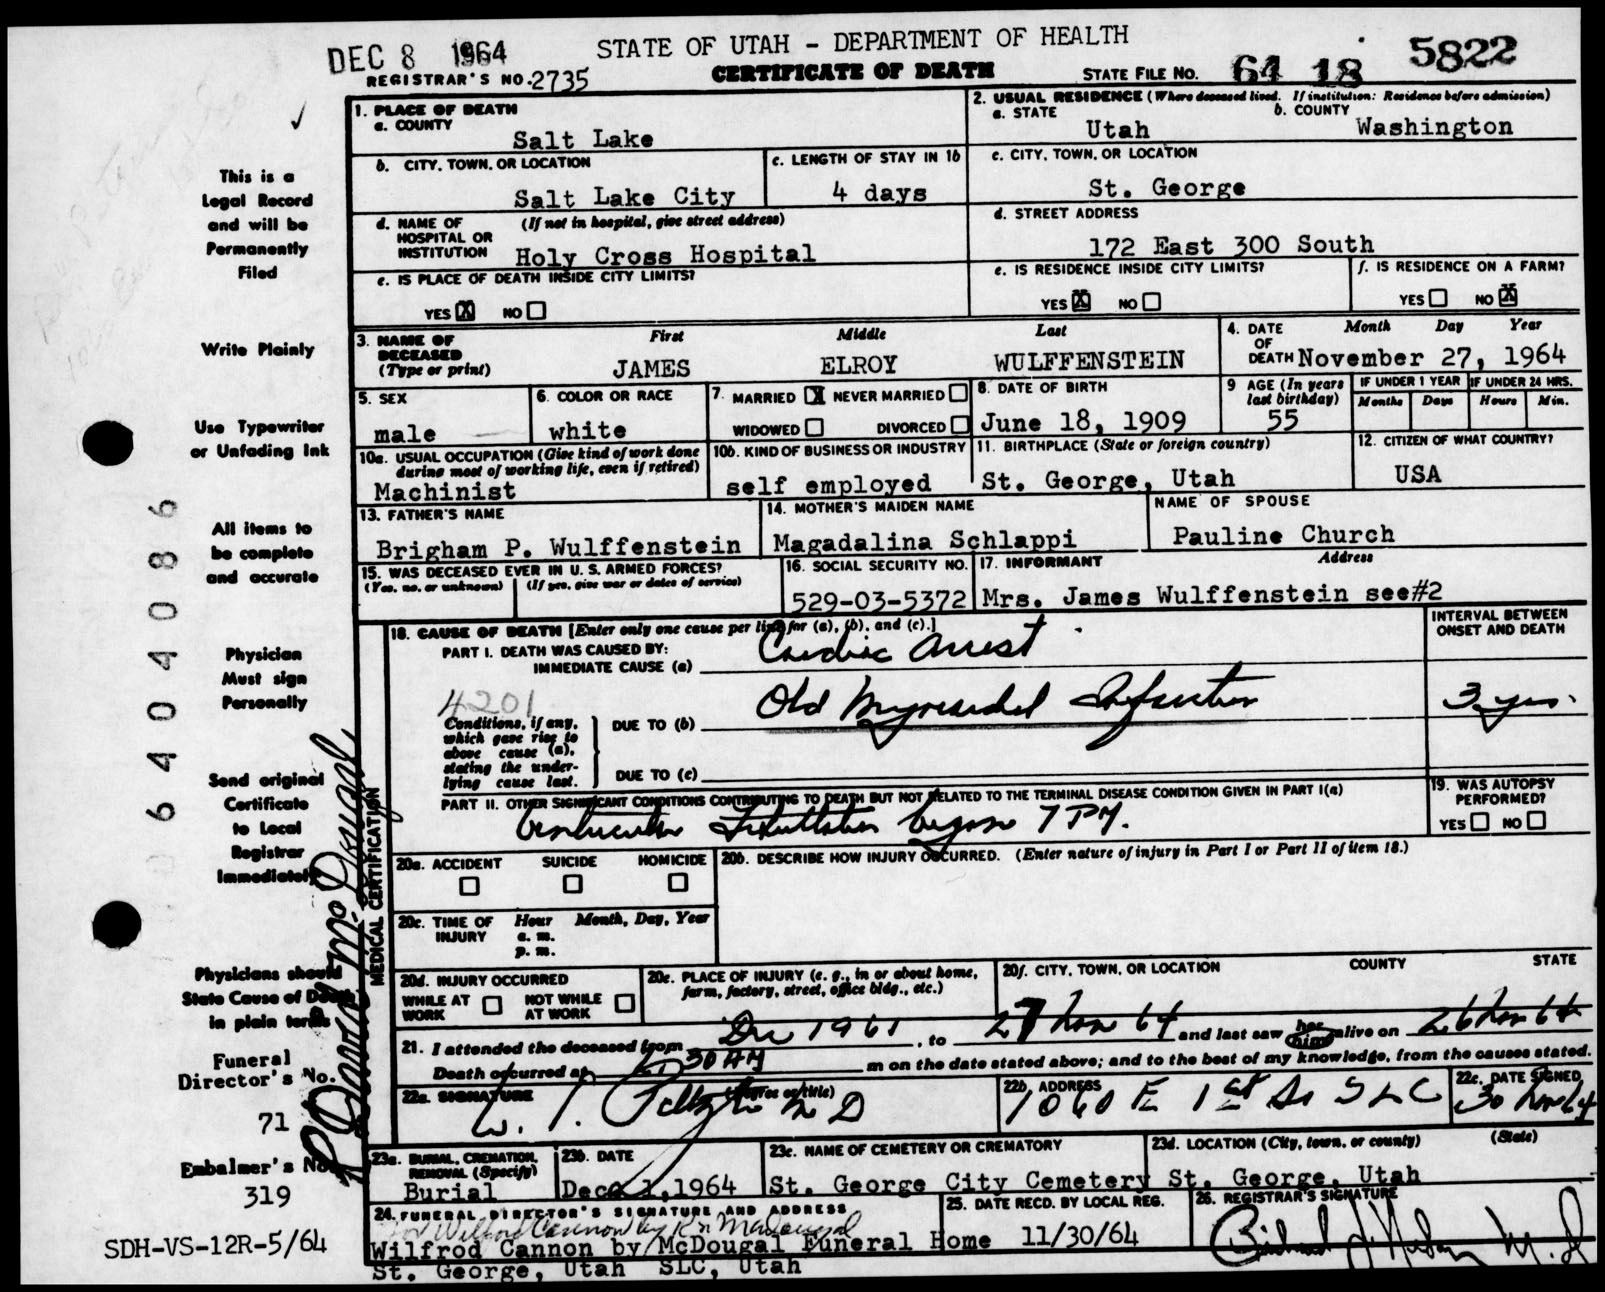 DEC 8 1964
STATE OF UTAH - DEPARTMENT OF HEALTH
REGISTRAR'S NO. 2735
CERTIFICATE OF DEATH
STATE FILE NO. 64 18 5822
1. PLACE OF DEATH
a. COUNTY
Salt Lake
2. USUAL RESIDENCE (Where deceased lived. If institution: Residence before admission)
a. STATE
Utah
b. COUNTY
Washington
b. CITY, TOWN, OR LOCATION
Salt Lake City
c. LENGTH OF STAY IN 1b
4 days
c. CITY, TOWN, OR LOCATION
St. George
d. NAME OF HOSPITAL OR INSTITUTION
(If not in hospital, give street address)
Holy Cross Hospital
d. STREET ADDRESS
172 East 300 South
e. IS PLACE OF DEATH INSIDE CITY LIMITS?
YES X NO
e. IS RESIDENCE INSIDE CITY LIMITS?
YES X NO
f. IS RESIDENCE ON A FARM?
YES NO X
3. NAME OF DECEASED (Type or print)
First Middle Last
JAMES ELROY WULFFENSTEIN
4. DATE OF DEATH
Month Day Year
November 27, 1964
5. SEX
male
6. COLOR OR RACE
white
7. MARRIED X NEVER MARRIED
WIDOWED DIVORCED
8. DATE OF BIRTH
June 18, 1909
9 AGE (In years last birthday)
55
IF UNDER 1 YEAR
Months Days
IF UNDER 24 HRS.
Hours Min.
10a. USUAL OCCUPATION (Give kind of work done during most of working life, even if retired)
Machinist
10b. KIND OF BUSINESS OR INDUSTRY
self employed
11. BIRTHPLACE (State or foreign country)
St. George, Utah
12. CITIZEN OF WHAT COUNTRY?
USA
13. FATHER'S NAME
Brigham P. Wulffenstein
14. MOTHER'S MAIDEN NAME
Magadalina Schlappi
NAME OF SPOUSE
Pauline Church
15. WAS DECEASED EVER IN U. S. ARMED FORCES?
(Yes, no, or unknown) (If yes, give war or dates of service)
16. SOCIAL SECURITY NO.
529-03-5372
17. INFORMANT Address
Mrs. James Wulffenstein see#2
18. CAUSE OF DEATH [Enter only one cause per line for (a), (b), and (c).]
PART I. DEATH WAS CAUSED BY:
IMMEDIATE CAUSE (a)
Cardiac Arrest
INTERVAL BETWEEN ONSET AND DEATH
4201
Conditions, if any, which gave rise to above cause (a), stating the underlying cause last.
DUE TO (b)
Old Myocardial Infarction
3 yrs.
DUE TO (c)
PART II. OTHER SIGNIFICANT CONDITIONS CONTRIBUTING TO DEATH BUT NOT RELATED TO THE TERMINAL DISEASE CONDITION GIVEN IN PART I(a)
Ventricular Fibrillation began 7 PM.
19. WAS AUTOPSY PERFORMED?
YES NO
20a. ACCIDENT SUICIDE HOMICIDE
20b. DESCRIBE HOW INJURY OCCURRED. (Enter nature of injury in Part I or Part II of item 18.)
20c. TIME OF INJURY
Hour Month, Day, Year
a. m.
p. m.
20d. INJURY OCCURRED
WHILE AT WORK NOT WHILE AT WORK
20e. PLACE OF INJURY (e. g., in or about home, farm, factory, street, office bldg., etc.)
20f. CITY, TOWN, OR LOCATION COUNTY STATE
21. I attended the deceased from Dec 1961, to 27 Nov 64 and last saw her him alive on 26 Nov 64
Death occurred at m on the date stated above; and to the best of my knowledge, from the causes stated.
22a. SIGNATURE (Degree or title)
MD
22b. ADDRESS
1060 E 1st So SLC
22c. DATE SIGNED
30 Nov 64
23a. BURIAL, CREMATION, REMOVAL (Specify)
Burial
23b. DATE
Dec 1, 1964
23c. NAME OF CEMETERY OR CREMATORY
St. George City Cemetery
23d. LOCATION (City, town, or county) (State)
St. George, Utah
24. FUNERAL DIRECTOR'S SIGNATURE AND ADDRESS
For Wilford Cannon by R D McDougal
Wilfrod Cannon by McDougal Funeral Home
St. George, Utah SLC, Utah
25. DATE RECD. BY LOCAL REG.
11/30/64
26. REGISTRAR'S SIGNATURE
M. D
This is a
Legal Record
and will be
Permanently
Filed
Write Plainly
Use Typewriter
or Unfading Ink
All items to
be complete
and accurate
Physician
Must sign
Personally
Send original
Certificate
to Local
Registrar
Immediately
Physicians should
State Cause of Death
in plain terms
Funeral
Director's No.
71
Embalmer's No.
319
SDH-VS-12R-5/64
MEDICAL CERTIFICATION
R David McDougal
64 04086